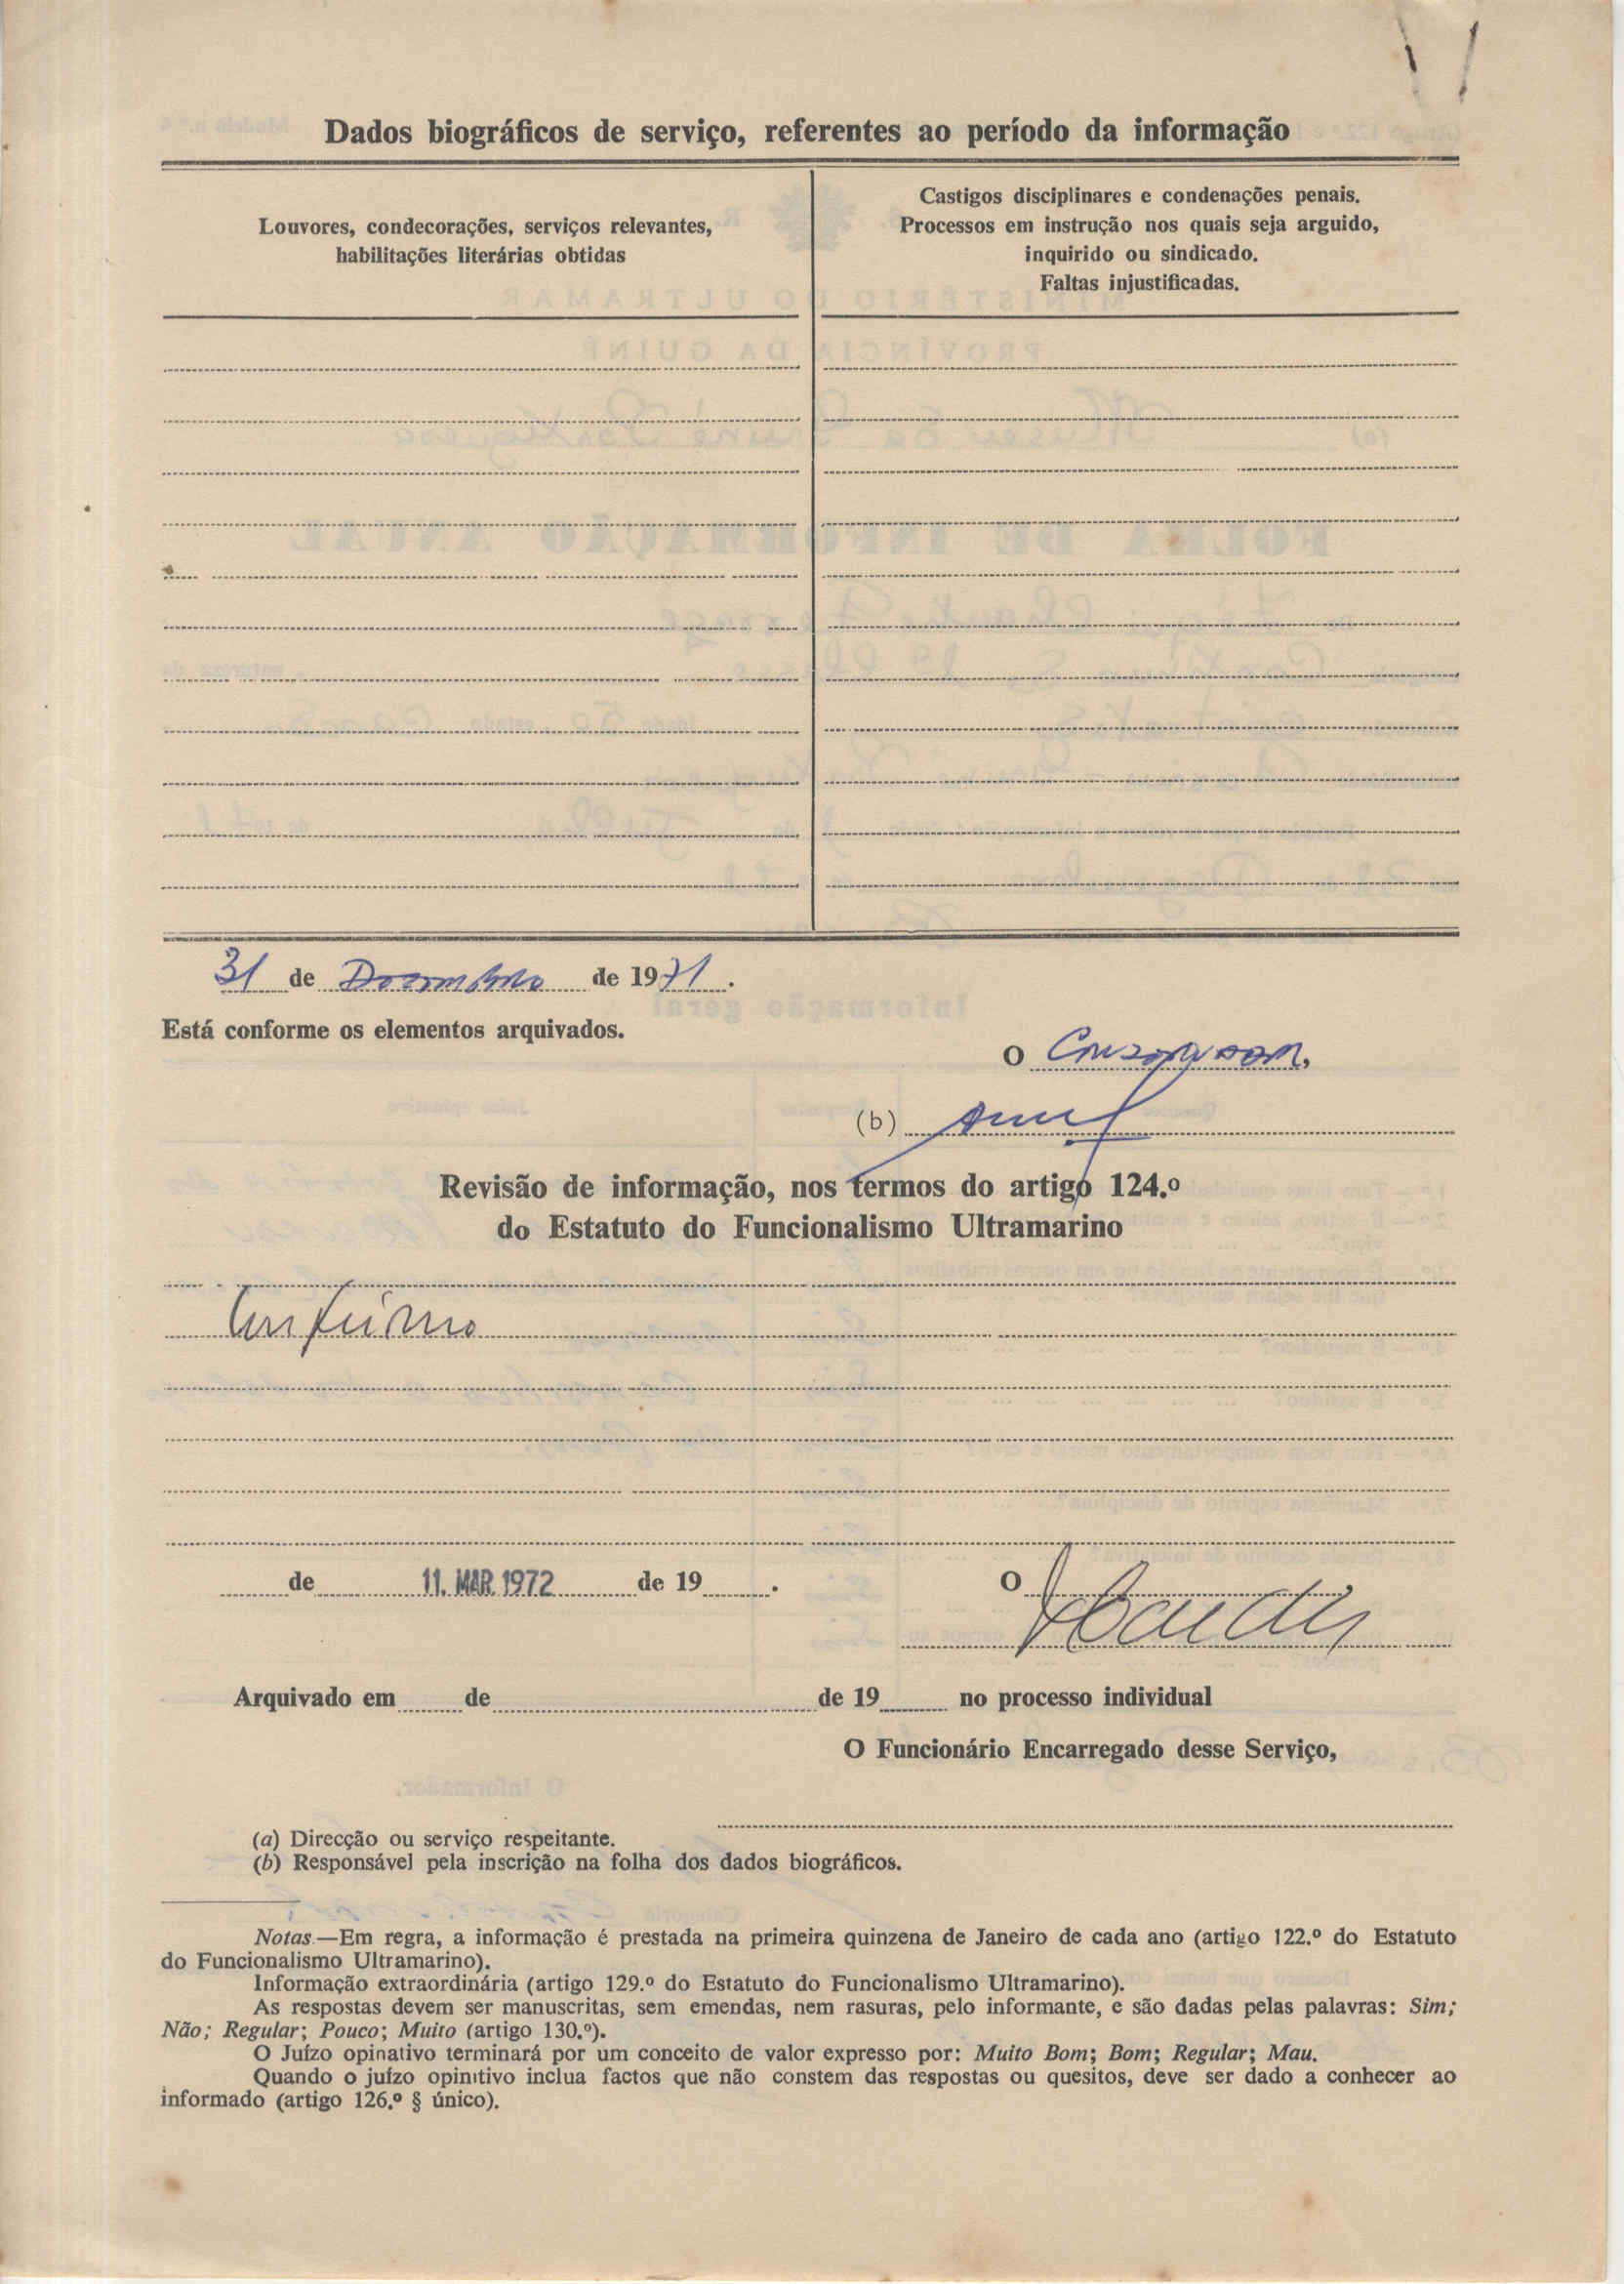 Dados biográficos de serviço, referentes ao período da informação
Louvores, condecorações, serviços relevantes,
habilitações literárias obtidas
Castigos disciplinares e condenações penais.
Processos em instrução nos quais seja arguido,
inquirido ou sindicado.
Faltas injustificadas.
31 de Dezembro de 1971.
Está conforme os elementos arquivados.
O Conservador,
(b)
Revisão de informação, nos termos do artigo 124.º
do Estatuto do Funcionalismo Ultramarino
Confirmo
de 11. MAR. 1972 de 19 .
O
Arquivado em de de 19 no processo individual
O Funcionário Encarregado desse Serviço,
(a) Direcção ou serviço respeitante.
(b) Responsável pela inscrição na folha dos dados biográficos.
Notas.—Em regra, a informação é prestada na primeira quinzena de Janeiro de cada ano (artigo 122.º do Estatuto
do Funcionalismo Ultramarino).
Informação extraordinária (artigo 129.º do Estatuto do Funcionalismo Ultramarino).
As respostas devem ser manuscritas, sem emendas, nem rasuras, pelo informante, e são dadas pelas palavras: Sim;
Não; Regular; Pouco; Muito (artigo 130.º).
O Juízo opinativo terminará por um conceito de valor expresso por: Muito Bom; Bom; Regular; Mau.
Quando o juízo opinitivo inclua factos que não constem das respostas ou quesitos, deve ser dado a conhecer ao
informado (artigo 126.º § único).